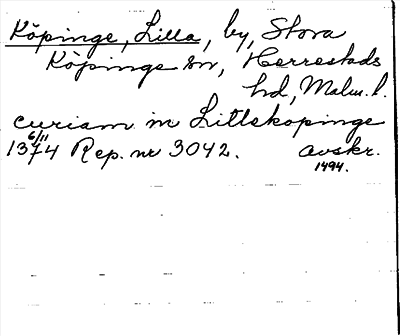 Köpinge, Lilla, by, Stora
Köpinge sn, Herrestads
hd, Malm. l.
curiam in Litlekopinge
6/11
1374 Rep. nr 3042. avskr.
1494.